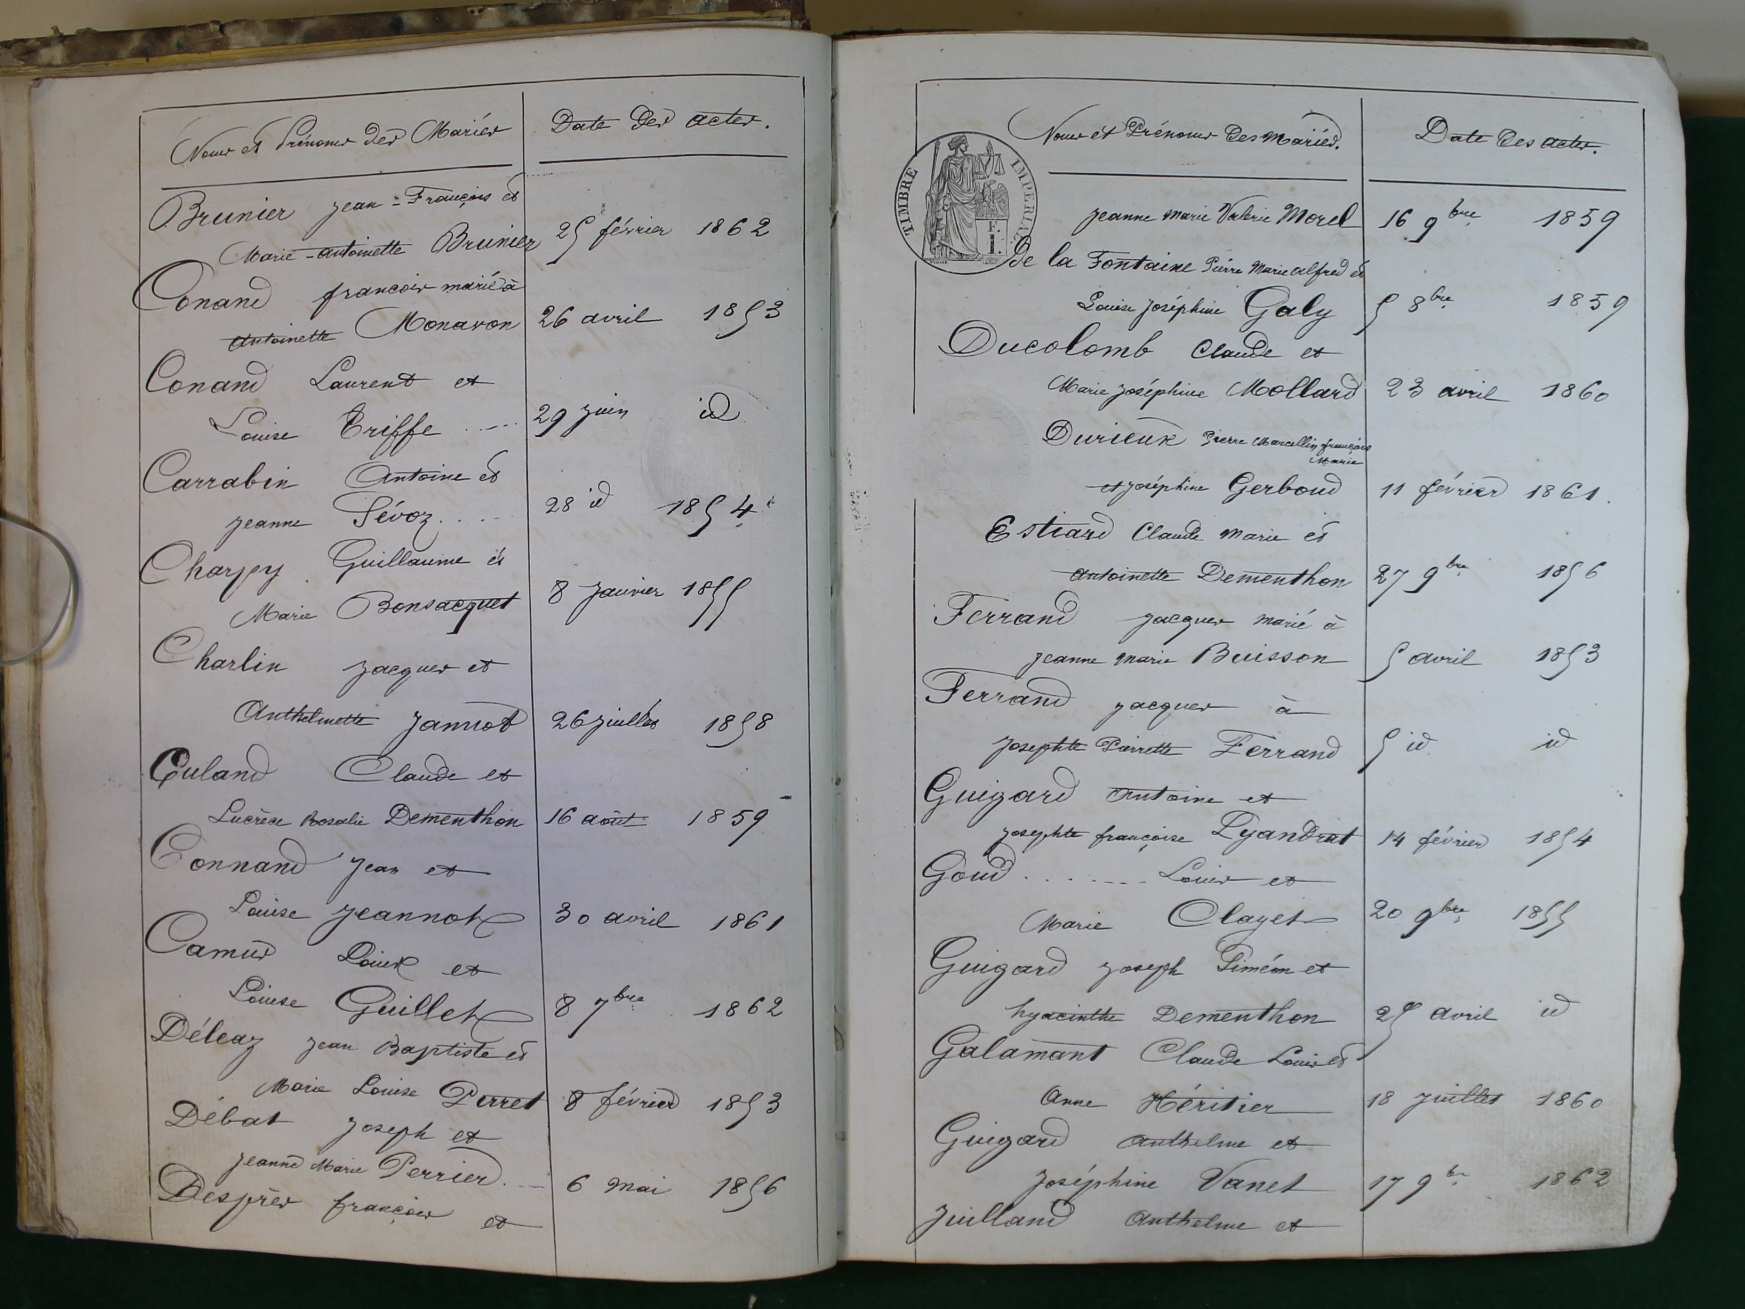 Noms et Prénoms des Mariés
Date des actes.
Brunier Jean-François et
Marie-Antoinette Brunier 25 février 1862
Conand françois marié à
Antoinette Monavon 26 avril 1853
Conand Laurent et
Louise Triffe .... 29 juin id
Carrabin Antoine et
Jeanne Sévoz .... 28 id 1854
Charpy Guillaume et
Marie Bonsacquet 8 Janvier 1855
Charlin Jacques et
Anthelmette Jannot 26 juillet 1858
Culand Claude et
Lucrèce Rosalie Dementhon 16 août 1859
Connand Jean et
Louise Jeannot 30 avril 1861
Camus Louis et
Louise Guillet 8 7bre 1862
Déléaz Jean Baptiste et
Marie Louise Perret 8 février 1853
Débat Joseph et
Jeanne Marie Perrier. 6 mai 1856
Desprès françois et
Noms et Prénoms des Mariés.
Date des actes.
TIMBRE IMPERIAL
Jeanne Marie Valérie Morel 16 9bre 1859
de la Fontaine Pierre Marie alfred et
Louise Joséphine Galy 5 8bre 1859
Ducolomb Claude et
Marie Joséphine Mollard 23 avril 1860
Durieux Pierre Marcellin françois
Marie
et Joséphine Gerboud 11 février 1861.
Estiard Claude Marie et
Antoinette Dementhon 27 9bre 1856
Ferrand Jacques marié à
Jeanne Marie Buisson 5 avril 1853
Ferrand Jacques à
Josephte Pierrette Ferrand 5 id id
Guigard Antoine et
Josephte françoise Lyandrat 14 février 1854
Goud ....... Louis et
Marie Clayet 20 9bre 1855
Guigard Joseph Siméon et
hyacinthe Dementhon 25 avril id
Galamant Claude Louis et
Anne Héritier 18 Juillet 1860
Guigard Anthelme et
Joséphine Vanet 17 9bre 1862
Juilland Anthelme et